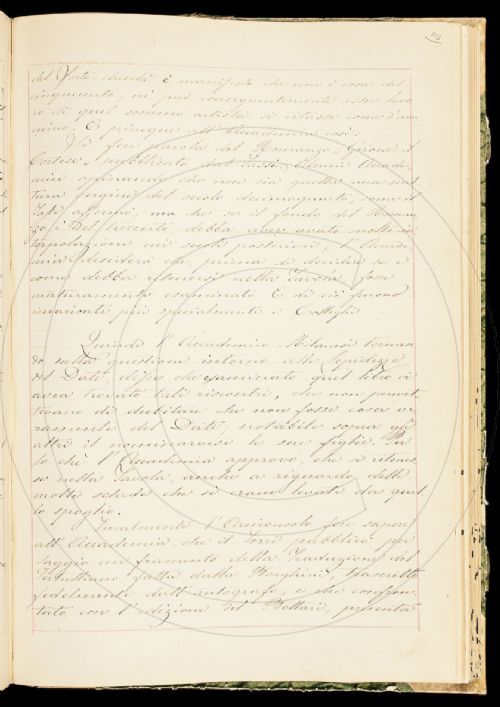 del Sarto, durchè è manifesto che non è cosa del
cinquecento, nè può conseguentemente esser lavo
ro di quel sommo artista, si citasse come d'ano
nimo. E piacque all'Accademia così.
Si fece parola del Romanzo, Girone il
Cortese, pubblicato dal Tassi, e l'Acca
mia opinando che non sia quella una scrit
tura originale del secolo decimoquarto, come il
Tassi affermò, ma che se il fondo del Roman
zo è del trecento, debba aver avuto molte in
terpolazioni nei secoli posteriori, l'Accade
mia desiderò che, prima di decidere se e
come debba ritenersi nella Tavola, fosse
maturamente esaminato. E di ciò furono
incaricati più specialmente i
Quindi l'Accademico Milanesi tornan
do sulla questione intorno alle Lepidezze
del Dati, disse che esaminato quel libro ci
avea trovati tali riscontri, che non permet
tevano di dubitare che non fosse cosa ve
ramente del Dati, notabile sopra gli
altri il nominarvisi le sue figlie. Per
lo chè l'Accademia approvò, che si ritenes
se nella Tavola, anche a riguardo delle
molte schede che si erano levate da quel
lo spoglio.
Finalmente l'Arciconsolo fece sapere
all'Accademia, che il Sorri pubblicò per
saggio un frammento della Traduzione del
Tertulliano fatta dalla Borghini, trascritto
fedelmente dall'autografo; e che confron
tato con l'edizione del Bottari, presenta